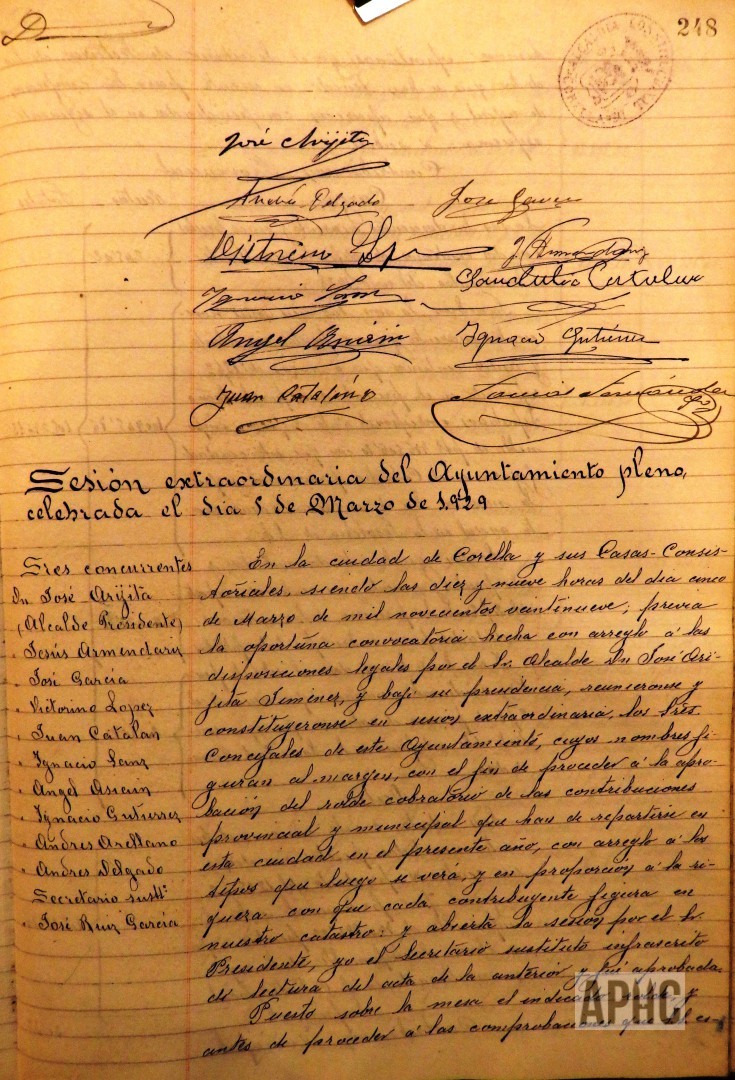 248
José Arijita
Andrés Delgado
José García
J Armendariz
Ignacio Sanz
Angel Ascain
Ignacio Gutiérrez
Juan Catalán
Sesión extraordinaria del Ayuntamiento pleno,
celebrada el día 5 de Marzo de 1.929
Sres concurrentes
Dn José Arijita
(Alcalde Presidente)
" Jesús Armendariz
" José García
" Victorino Lopez
" Juan Catalán
" Ignacio Sanz
" Angel Ascain
" Ignacio Gutierrez
" Andres Arellano
" Andres Delgado
Secretario sustto
José Ruiz García
En la ciudad de Corella y sus Casas-Consis-
toriales, siendo las diez y nueve horas del dia cinco
de Marzo de mil novecientos veintinueve; previa
la oportuna convocatoria hecha con arreglo á las
disposiciones legales por el Sr. Alcalde Dn José Ari-
jita Jimenez, y bajo su presidencia, reunieronse y
constituyeronse en sesion extraordinaria, los Sres
Concejales de este Ayuntamiento, cuyos nombres fi-
guran al margen, con el fin de proceder á la apro-
bacion del rolde cobratorio de las contribuciones
provincial y municipal que han de repartirse en
esta ciudad en el presente año, con arreglo á los
tipos que luego se verá, y en proporción á la ri-
queza con que cada contribuyente figura en
nuestro catastro: y abierta la sesion por el Sr.
Presidente, yo el Secretario sustituto infrascrito
di lectura del acta de la anterior y fué aprobada.
Puesto sobre la mesa el indicado rolde y
antes de proceder á las comprobaciones que
APHC